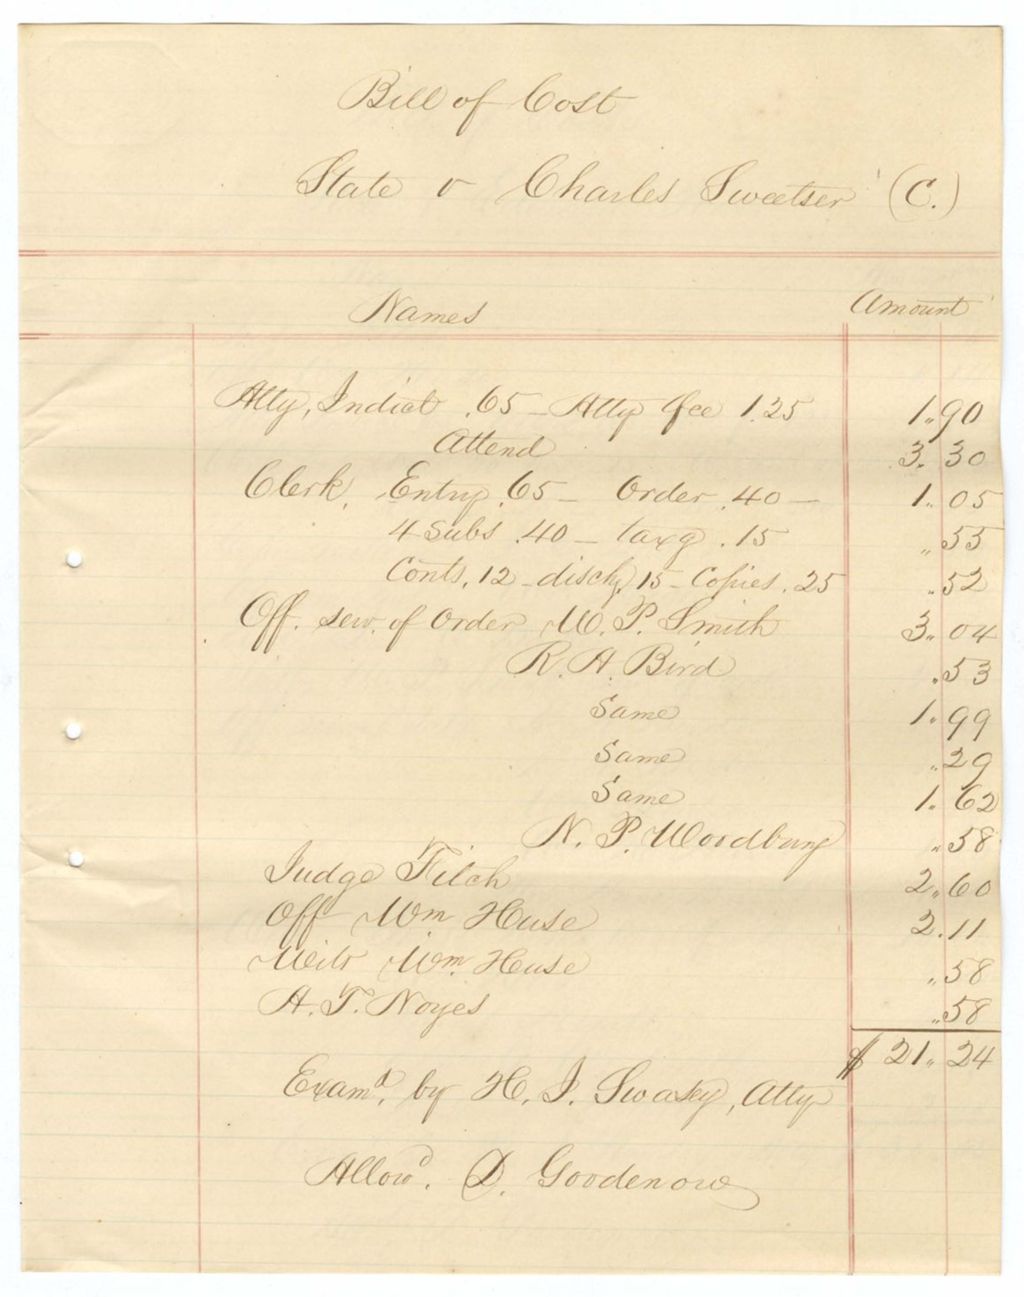 Bill of Cost
State v Charles Sweetser (C.)
Names Amount
Atty, Indict .65 - Atty fee 1.25 1.90
Attend 3.30
Clerk, Entry .65 - Order .40 - 1.05
4 Subs .40 - taxg .15 .55
Conts. 12 - disch, 15 - Copies .25 .52
Off. serv. of Order W. P. Smith 3.04
R. A. Bird .53
Same 1.99
Same .29
Same 1.62
N. P. Woodbury .58
Judge Fitch 2.60
Off Wm Huse 2.11
Wits Wm. Huse .58
A. T. Noyes .58
$ 21.24
Examd. by H. I. Swasey, Atty
Allowd. D. Goodenow